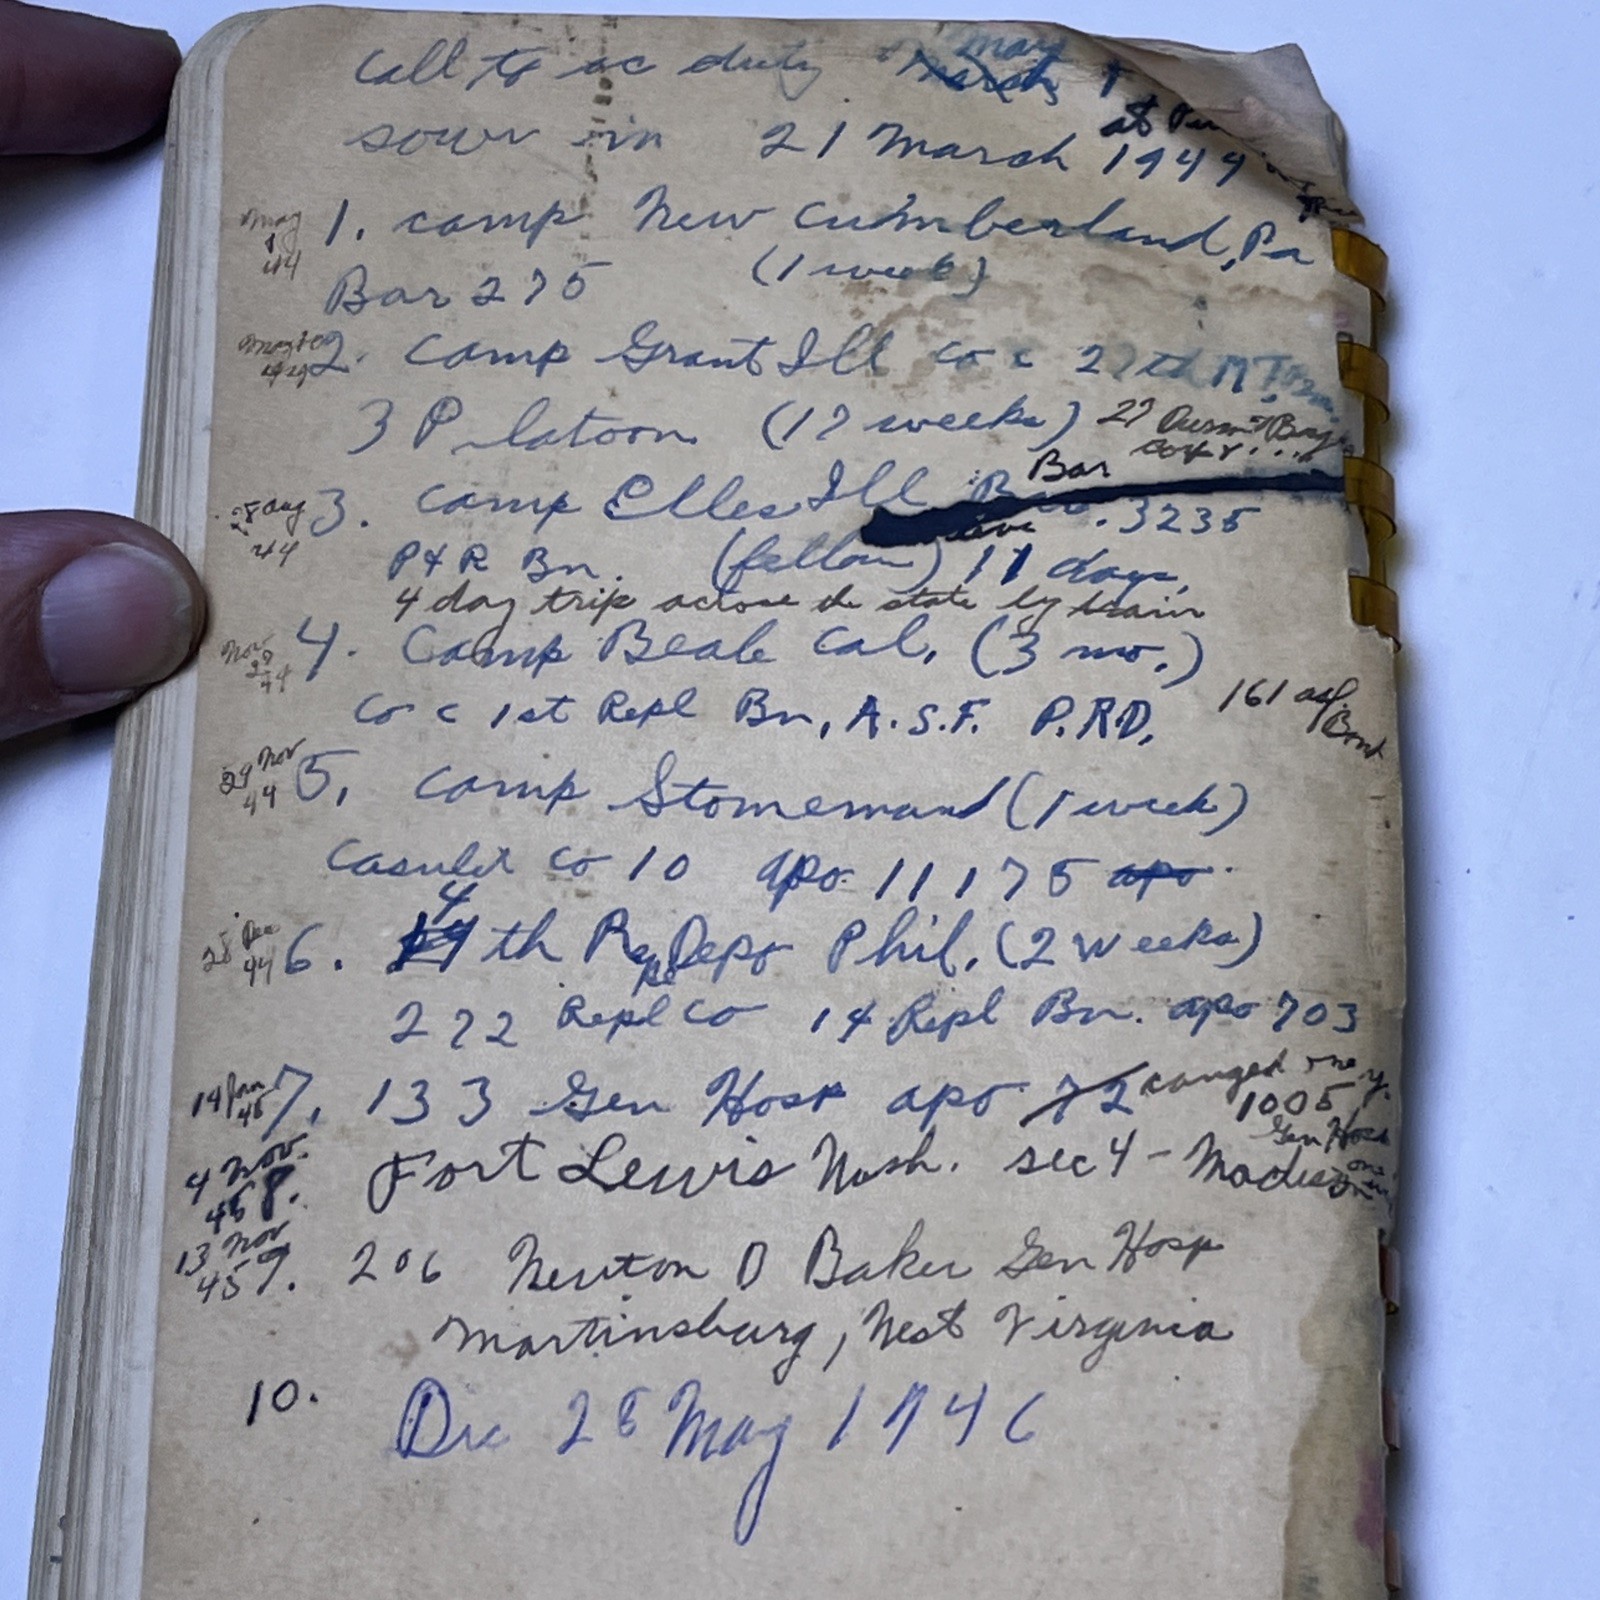 Call to ac duty May
sowr in 21 March 1944 at
May 1 44 1. camp New Cumberland, Pa
Bar 275 (1 week)
May 2. Camp Grant Ill Co c 27th M.T.
3 Platoon (17 weeks) 27
28 Aug 44 3. camp Elles Ill Bar 3235
P & R Bn. (fellow) 11 days,
4 day trip across the state by train
Nov 44 4. Camp Beale Cal. (3 mo.)
Co c 1st Repl Bn, A.S.F. P.RD. 161
29 Nov 44 5. camp Stonemand (1 week)
Casulet Co 10 apo 11175 apo
28 Dec 44 6. 4th Depo Phil. (2 weeks)
272 Repl Co 14 Repl Bn. apo 703
14 Jan 45 7. 133 Gen Hosp apo 72 canged 1005
4 Nov. 45 8. Fort Lewis Wash. sec 4 - Madison Gen Hosp
13 Nov 45 9. 206 Newton D Baker Gen Hosp
Martinsburg, West Virginia
10. Dic 28 May 1946